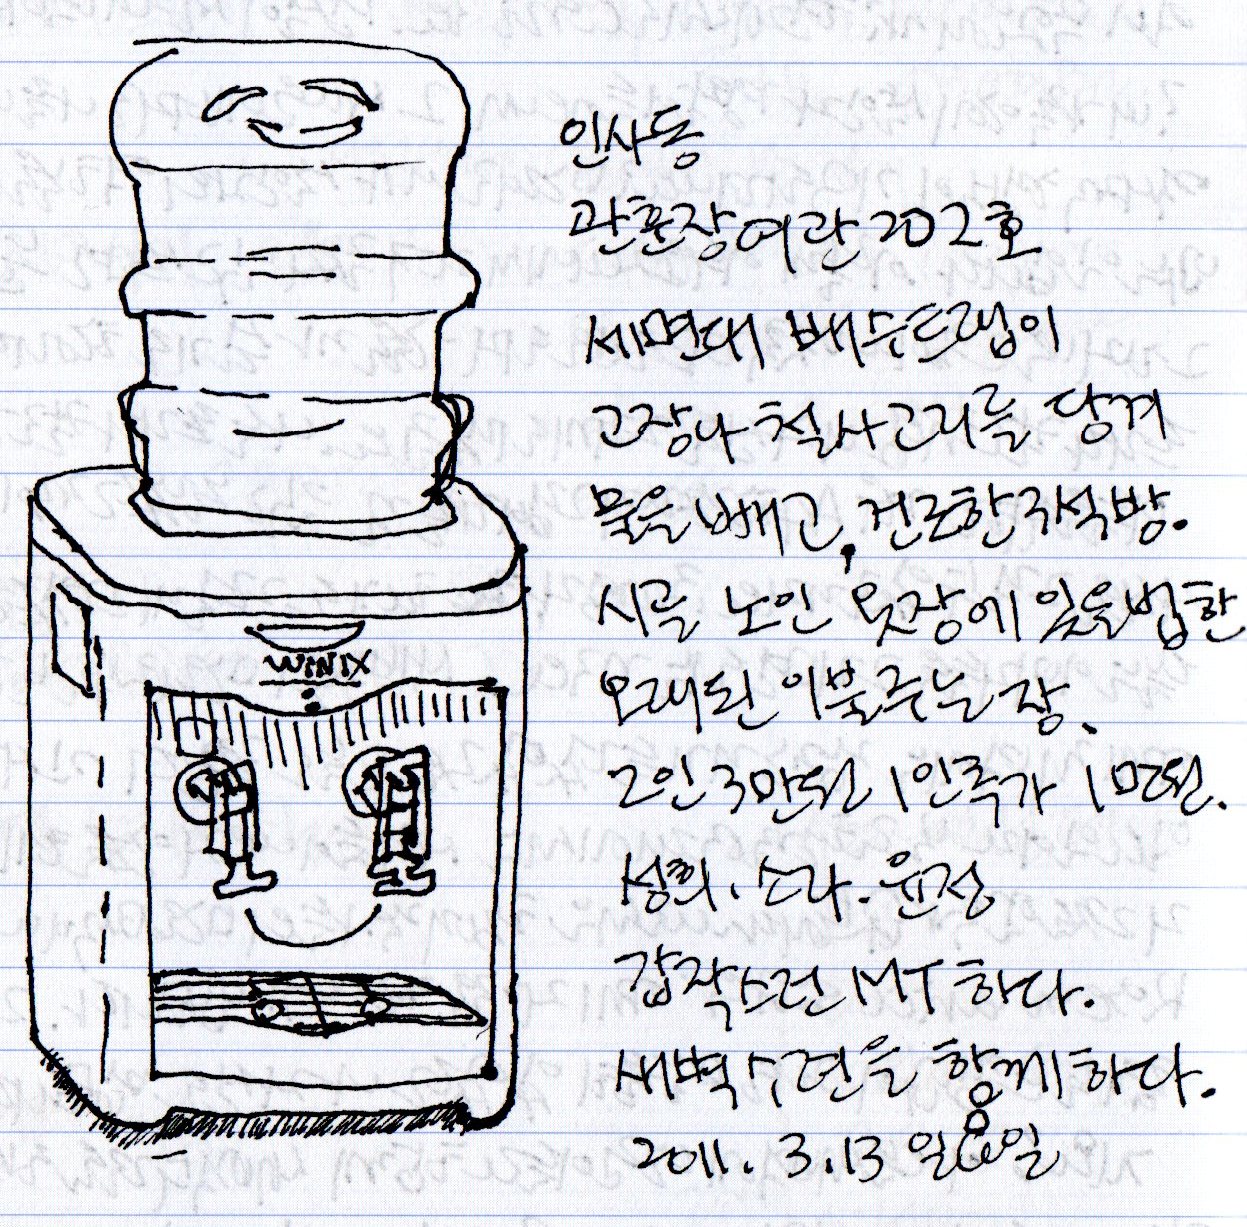 인사동
관훈장여관 202호
세면대 배수트랩이
고장나 철사고리를 당겨
물을 빼고, 건조한 자석방.
시골 노인 옷장에 있을법한
오래된 이불주는 장.
2인 3만원 1인추가 1만원.
성희. 소라. 윤정
갑작수련 MT 하다.
새벽수련을 함께하다.
2011. 3. 13 일요일
WINIX